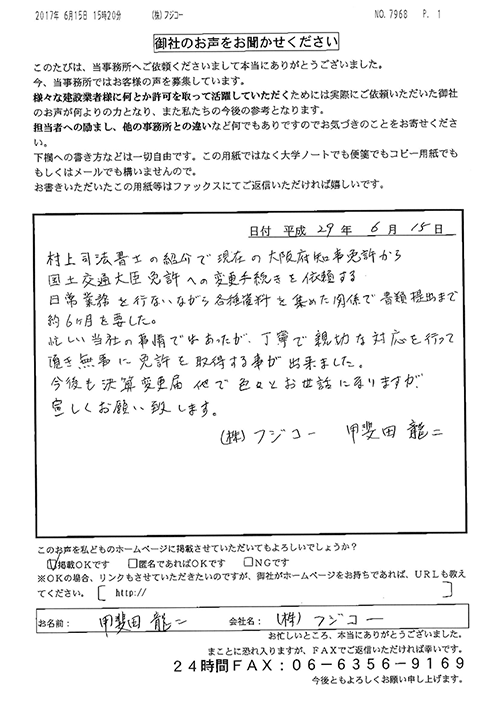 2017年 6月15日 15時20分　(株)フジコー　NO.7968　P. 1
御社のお声をお聞かせください
このたびは、当事務所へご依頼くださいまして本当にありがとうございました。
今、当事務所ではお客様の声を募集しています。
様々な建設業者様に何とか許可を取って活躍していただくためには実際にご依頼いただいた御社
のお声が何よりの力となり、また私たちの今後の参考となります。
担当者への励まし、他の事務所との違いなど何でもありですのでお気づきのことをお寄せくださ
い。
下欄への書き方などは一切自由です。この用紙ではなく大学ノートでも便箋でもコピー用紙でも
もしくはメールでも構いませんので。
お書きいただいたこの用紙等はファックスにてご返信いただければ嬉しいです。
日付 平成 29 年 6 月 15 日
村上司法書士の紹介で現在の大阪府知事免許から
国土交通大臣免許への変更手続きを依頼する
日常業務を行ないながら各種資料を集めた関係で書類提出まで
約6ヶ月を要した。
忙しい当社の事情で出あったが、丁寧で親切な対応を行って
頂き無事に免許を取得する事が出来ました。
今後も決算変更届 他で色々とお世話になりますが
宜しくお願い致します。
(株)フジコー　甲斐田 龍二
このお声を私どものホームページに掲載させていただいてもよろしいでしょうか？
☑掲載OKです　□匿名であればOKです　□NGです
※OKの場合、リンクもさせていただきたいのですが、御社がホームページをお持ちであれば、URLも教え
てください。［ http:// ］
お名前： 甲斐田 龍二　会社名： (株)フジコー
お忙しいところ、本当にありがとうございました。
まことに恐れ入りますが、FAXでご返信いただければ幸いです。
24時間FAX：06-6356-9169
今後ともよろしくお願い申し上げます。